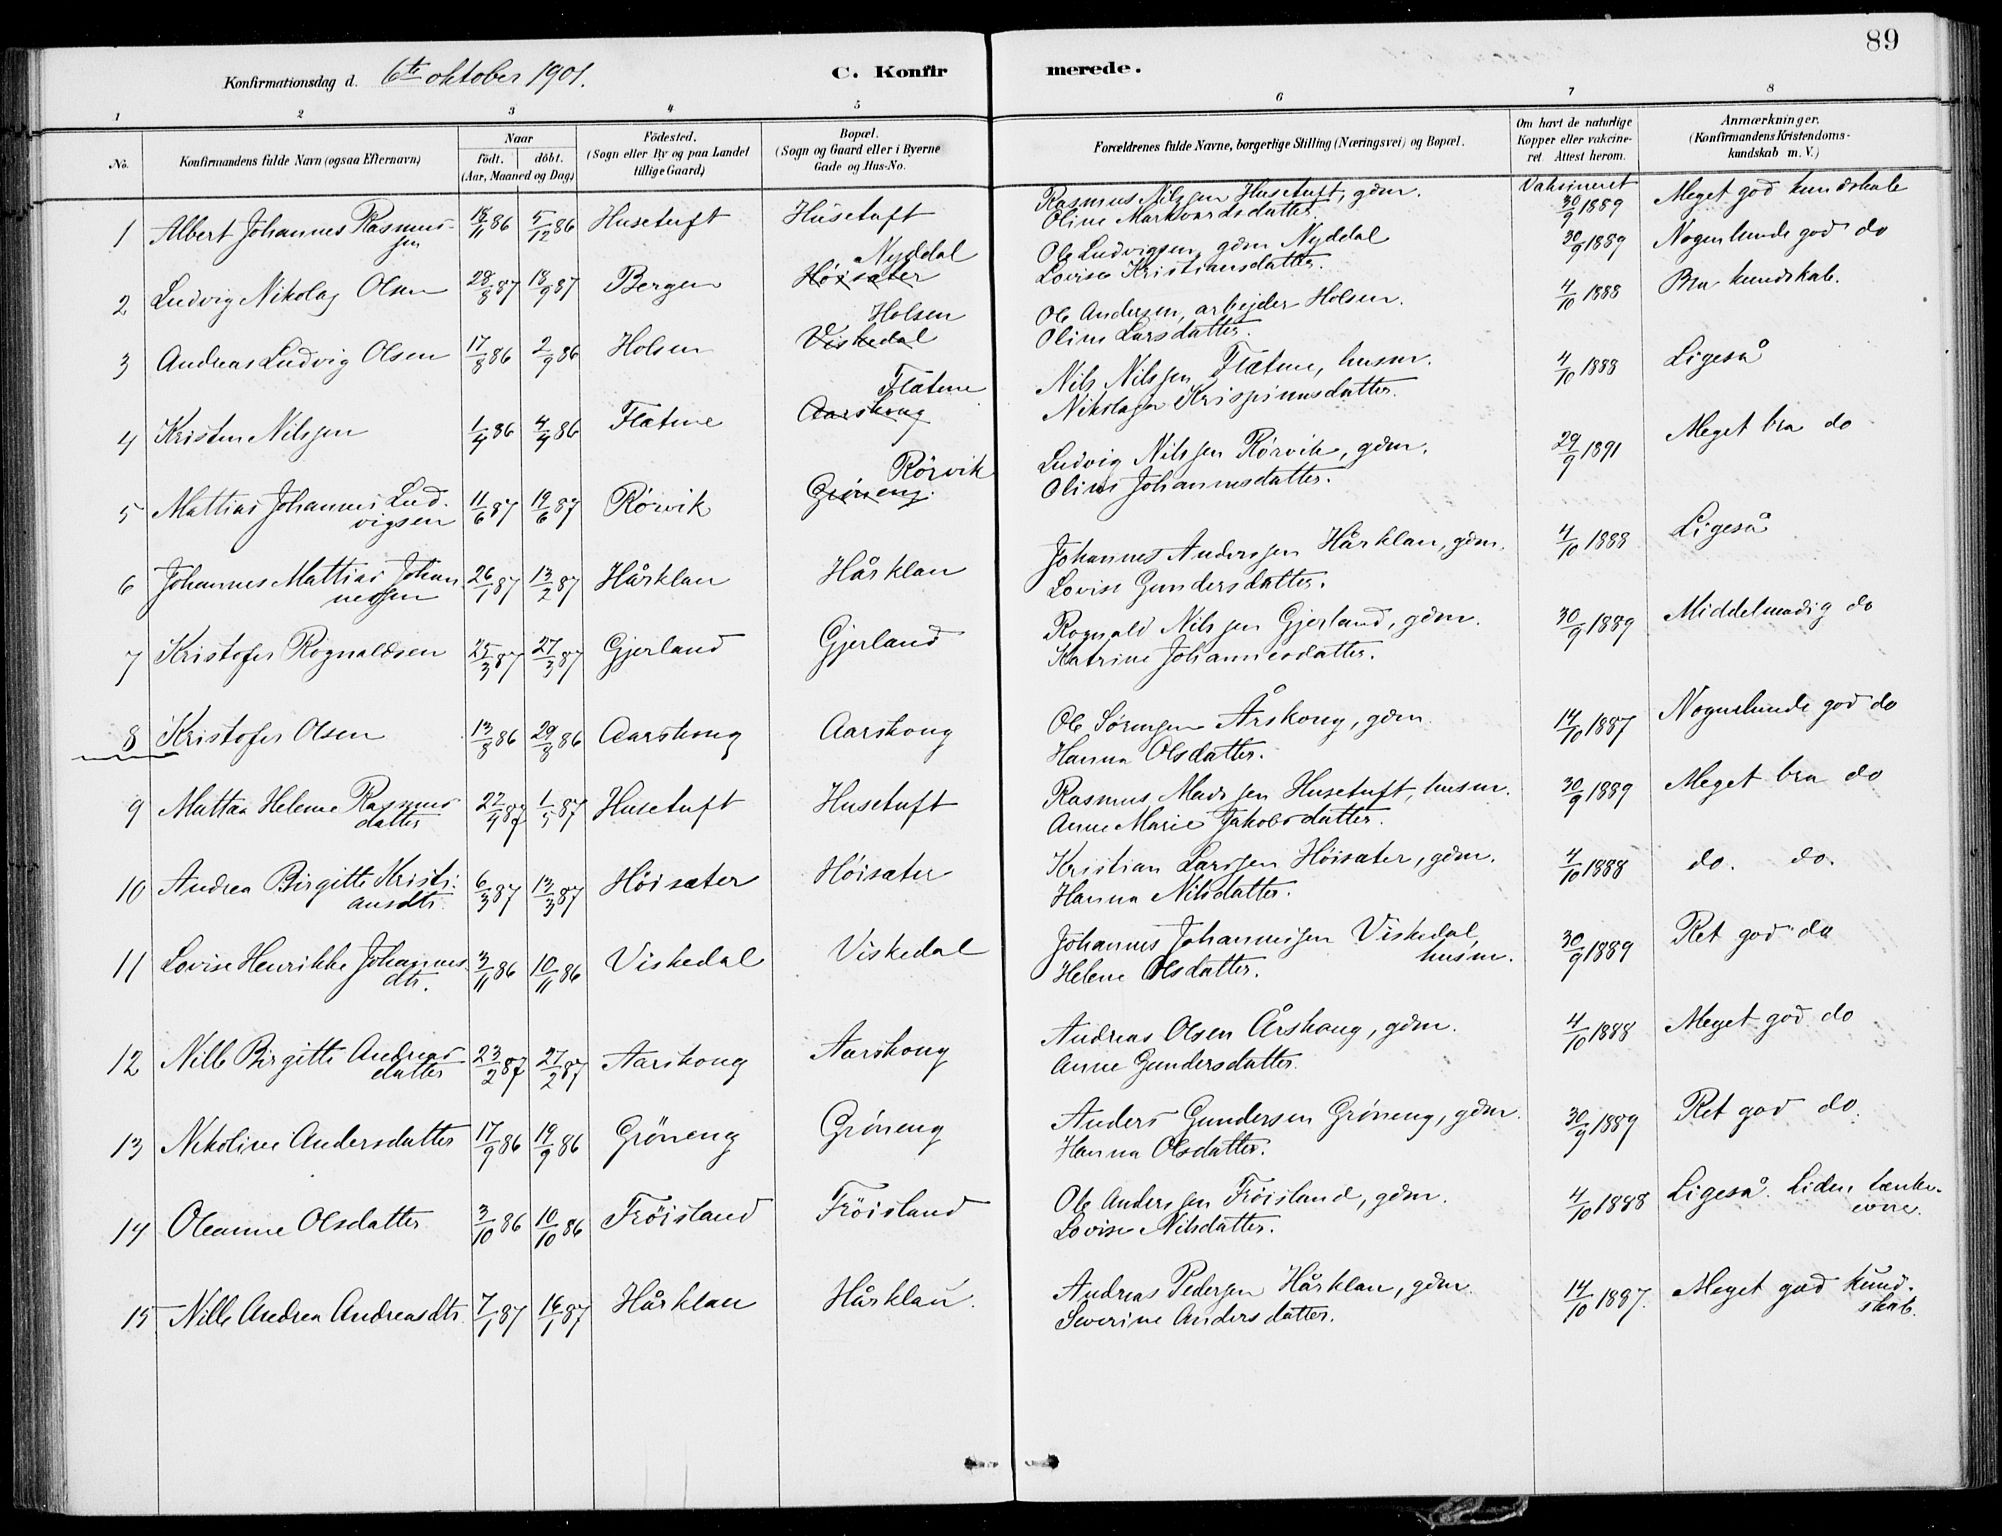 89
Konfirmationsdag d. 6te oktober 1901.
C. Konfirmerede.
1 2 3 4 5 6 7 8
No.
Konfirmandens fulde Navn (ogsaa Efternavn)
Naar
födt. döbt.
(Aar, Maaned og Dag)
Födested.
(Sogn eller By og paa Landet
tillige Gaard)
Bopæl.
(Sogn og Gaard eller i Byerne
Gade og Hus-No.
Forældrenes fulde Navne, borgerlige Stilling (Næringsvei) og Bopæl.
Om havt de naturlige
Kopper eller vakcine-
ret Attest herom.
Anmærkninger.
(Konfirmandens Kristendoms-
kundskab m. V.)
1 Albert Johannes Rasmus-
sen 18/11 86 5/12 86 Husetuft Husetuft
Rasmus Nilssen Husetuft, gdm.
Oline Markvardsdatter.
Vaksineret
30/9 1889 Meget god kundskab
2 Ludvig Nikolaj Olsen 28/8 87 18/9 87 Bergen
Nyddal
Höisæter
Ole Ludvigsen, gdm Nyddal
Lovise Kristiansdatter.
30/9 1889 Nogenlunde god do
3 Andreas Ludvig Olsen 17/8 86 2/9 86 Holsen
Holsen
Viskedal
Ole Andersen, arbejder Holsen.
Oline Larsdatter.
4/10 1888 Bra kundskab.
4 Kristen Nilssen 1/4 86 4/4 86 Flatene
Flatene
Aarskoug
Nils Nilssen Flatene, husm.
Nikolagen Krispinusdatter.
4/10 1888 Ligeså
5 Mattias Johannes Lud-
vigsen 11/6 87 19/6 87 Rörvik
Rörvik
Gröneng.
Ludvig Nilssen Rörvik, gdm.
Oline Johannesdatter.
29/9 1891 Meget bra do
6 Johannes Mattias Johan
nessen 26/1 87 13/2 87 Hårklau Hårklau
Johannes Anderssen Hårklau, gdm.
Lovise Gundersdatter.
4/10 1888 Ligeså
7 Kristofer Rognaldsen 25/3 87 27/3 87 Gjerland Gjerland
Rognald Nilssen Gjerland, gdm.
Katrine Johannesdatter.
30/9 1889 Middelmadig do
8 Kristofer Olsen 13/8 86 29/8 86 Aarskoug Aarskoug
Ole Sörensen Årskoug, gdm.
Hanna Olsdatter.
14/10 1887 Nogenlunde god do
9 Mattea Helene Rasmus-
datter 22/4 87 1/5 87 Husetuft Husetuft
Rasmus Madssen Husetuft, husm.
Anne Marie Jakobsdatter.
30/9 1889 Meget bra do
10 Andrea Birgitte Kristi-
ansdtr. 6/3 87 13/3 87 Höisæter Höisæter
Kristian Larssen Höisæter, gdm.
Hanna Nilsdatter.
4/10 1888 do. do.
11 Lovise Henrikke Johannes-
dtr. 3/11 86 10/11 86 Viskedal Viskedal
Johannes Johannessen Viskedal,
husm.
Helene Olsdatter.
30/9 1889 Ret god do
12 Nille Birgitte Andreas-
datter 23/2 87 27/2 87 Aarskoug Aarskoug
Andreas Olsen Årskoug, gdm.
Anne Gundersdatter.
4/10 1888 Meget god do
13 Nikoline Andersdatter 17/9 86 19/9 86 Gröneng Gröneng
Anders Gundersen Gröneng, gdm.
Hanna Olsdatter.
30/9 1889 Ret god do.
14 Oleanne Olsdatter 3/10 86 10/10 86 Fröisland Fröisland
Ole Anderssen Fröisland, gdm.
Lovise Nilsdatter.
4/10 1888 Ligeså. Liden tænke-
evne.
15 Nille Andrea Andreasdtr. 7/1 87 16/1 87 Hårklau Hårklau.
Andreas Pedersen Hårklau, gdm.
Severine Andersdatter.
14/10 1887. Meget god kund-
skab.